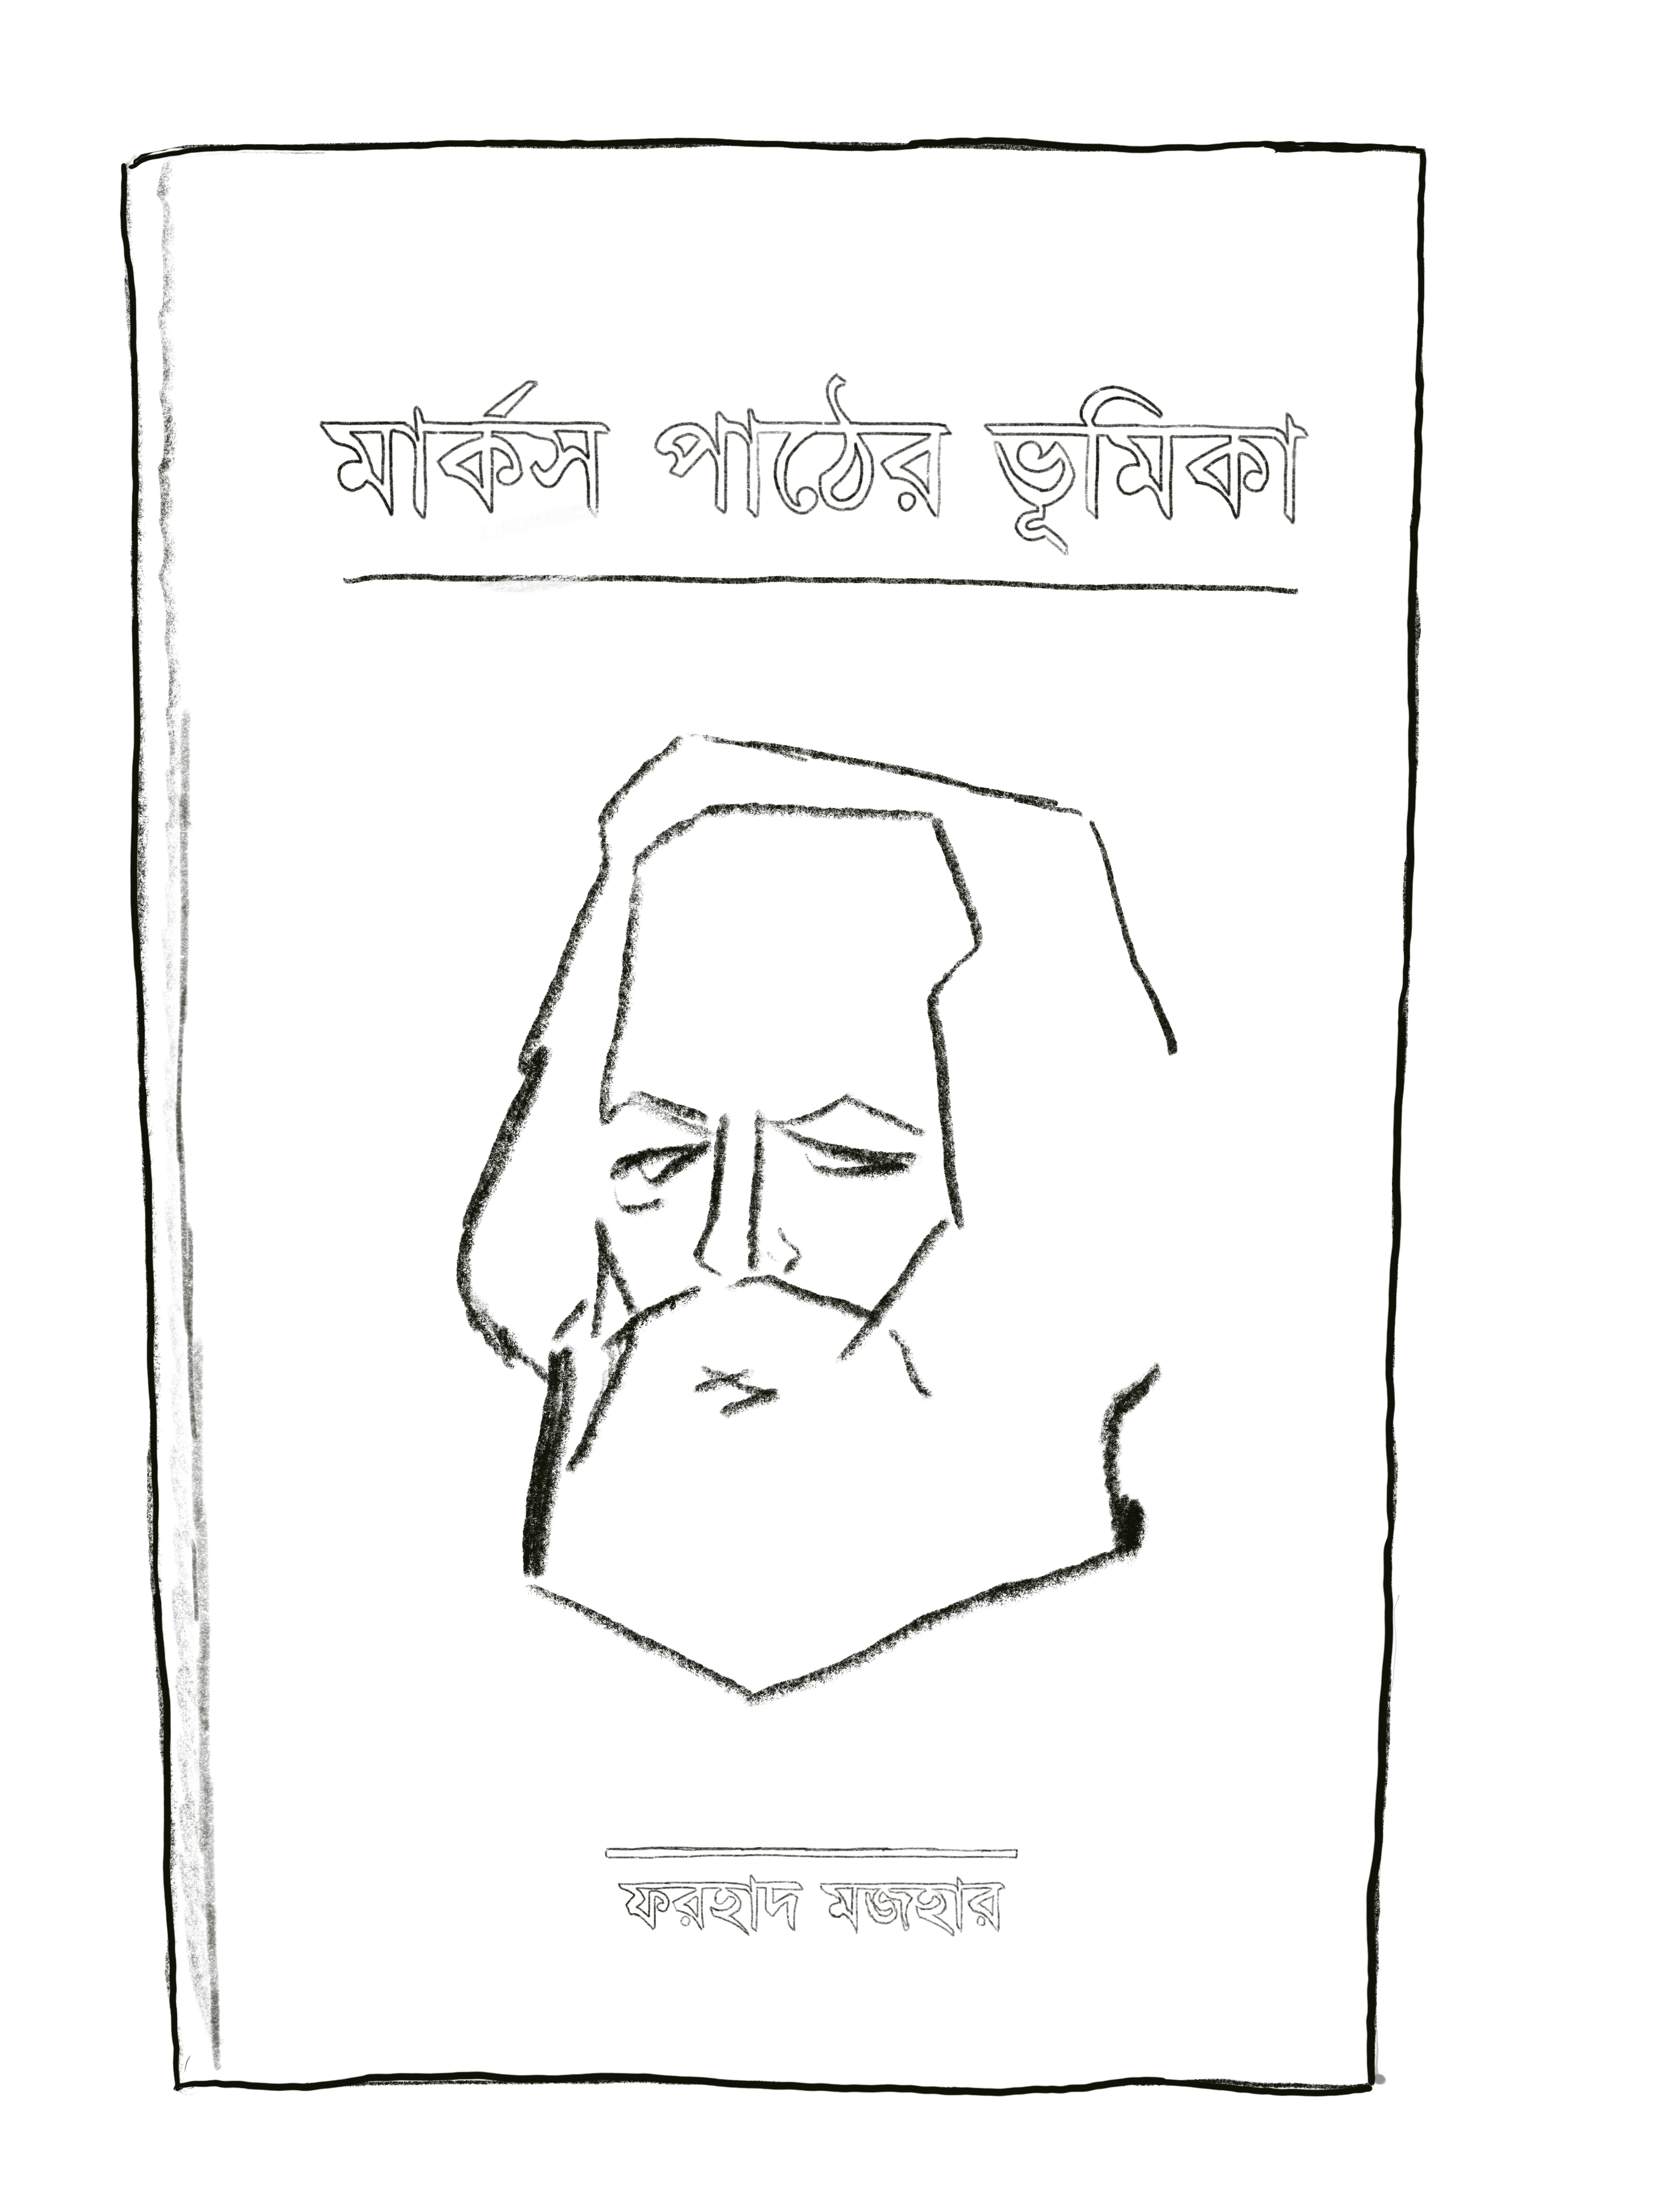 মার্কস পাঠের ভূমিকা
ফরহাদ মজহার